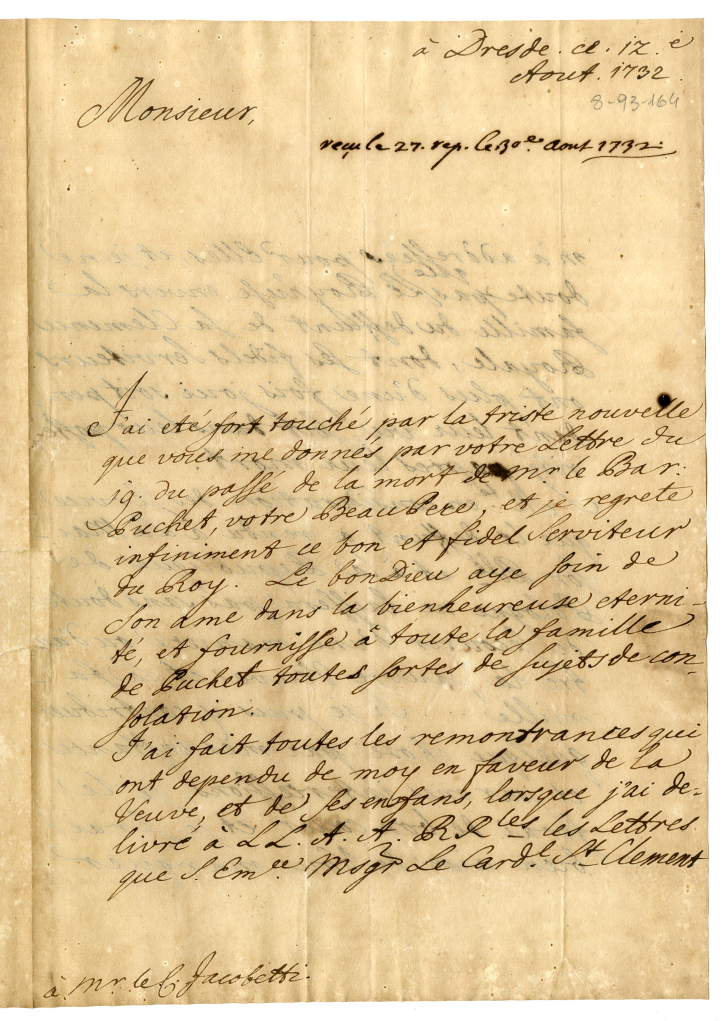 à Dresde. ce. 12.e
Aout. 1732.
8-93-164
Monsieur,
reçu le 27. rep. le 30.e Aout 1732.
J'ai eté fort touché, par la triste nouvelle
que vous me donnés par votre Lettre du
19. du passé de la mort de Mr. le Bar:
Puchet, votre Beau Pere, et je regrete
infiniment ce bon et fidel Serviteur
du Roy. Le bon Dieu aye soin de
Son ame dans la bienheureuse eterni-
té, et fournisse à toute la famille
de Puchet toutes sortes de sujets de con-
solation.
J'ai fait toutes les remontrances qui
ont dependu de moy en faveur de la
Veuve, et de ses enfans, lorsque j'ai de-
livré à LL. A. A. RR.les les Lettres
que S. Em.ce Msgr Le Card.l St. Clement
à Mr. le C. Jacobetti.